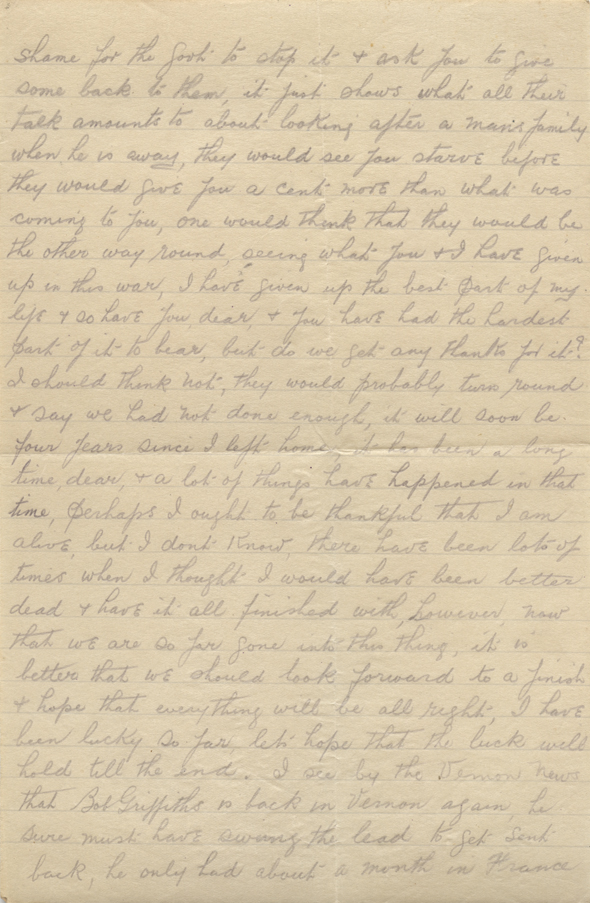 shame for the Govt to stop it & ask you to give
some back to them, it just shows what all their
talk amounts to about looking after a mans family
when he is away, they would see you starve before
they would give you a cent more than what was
coming to you, one would think that they would be
the other way round, seeing what you & I have given
up in this war, I have given up the best part of my
life & so have you, dear, & you have had the hardest
part of it to bear, but do we get any thanks for it?
I should think not, they would probably turn round
& say we had not done enough, it will soon be
four years since I left home, it has been a long
time, dear, & a lot of things have happened in that
time, perhaps I ought to be thankful that I am
alive, but I dont know, there have been lots of
times when I thought I would have been better
dead & have it all finished with, however, now
that we are so far gone into this thing, it is
better that we should look forward to a finish
& hope that everything will be all right, I have
been lucky so far, lets hope that the luck will
hold till the end. I see by the Vernon News
that Bob Griffiths is back in Vernon again, he
sure must have swung the lead to get sent
back, he only had about a month in France